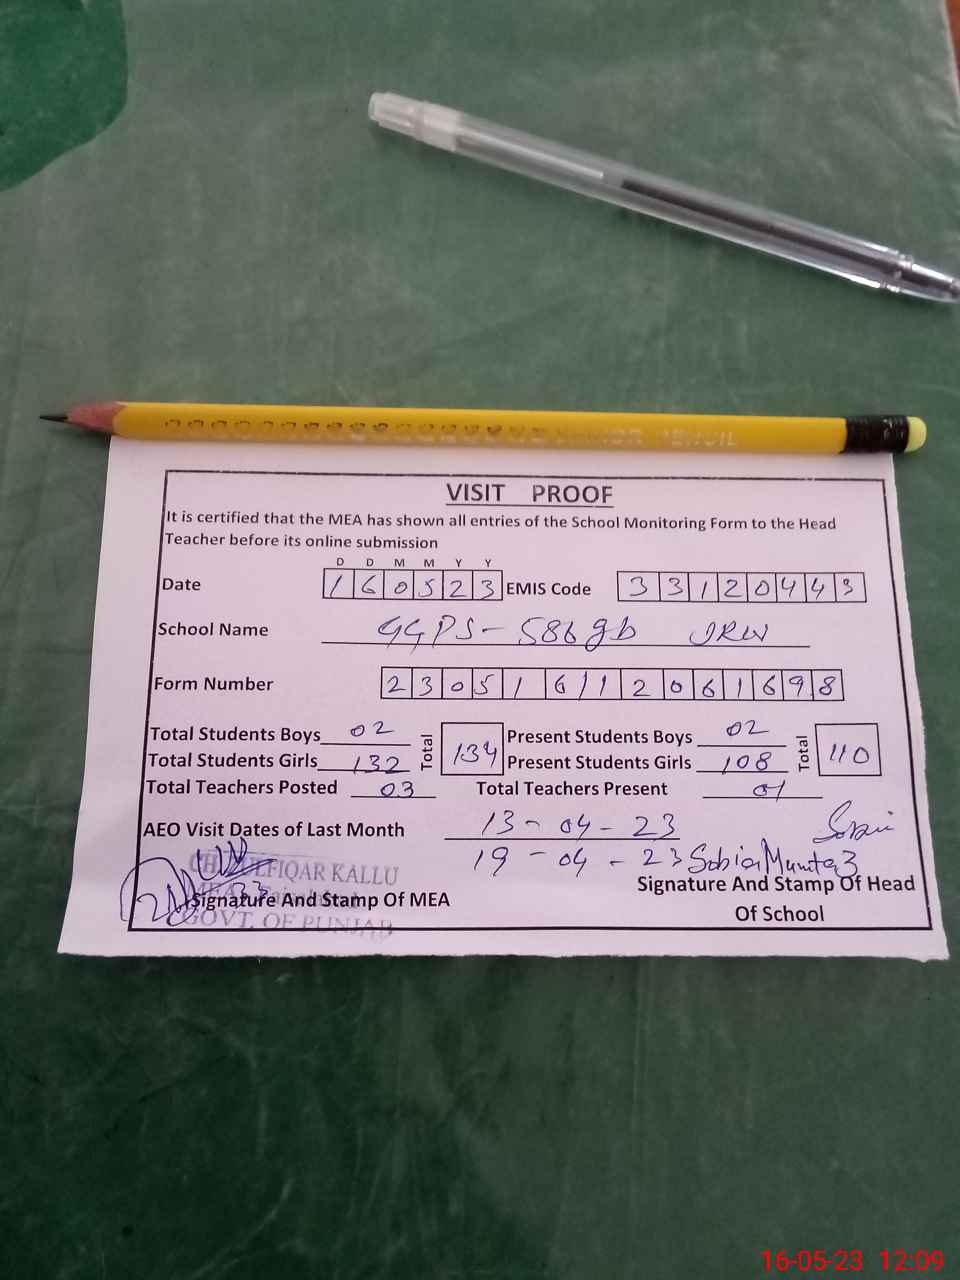 VISIT PROOF
It is certified that the MEA has shown all entries of the School Monitoring Form to the Head
Teacher before its online submission
D D M M Y Y
Date 160523 EMIS Code 33120443
School Name GGPS-586gb JRW
Form Number 230516112061698
Total Students Boys 02 Total 134 Present Students Boys 02 Total 110
Total Students Girls 132 Present Students Girls 108
Total Teachers Posted 03 Total Teachers Present 01
AEO Visit Dates of Last Month 13-04-23
19-04-23 Sobia Mumtaz
KALLU
Signature And Stamp Of MEA
GOVT. OF PUNJAB
Signature And Stamp Of Head
Of School
16-05-23 12:09